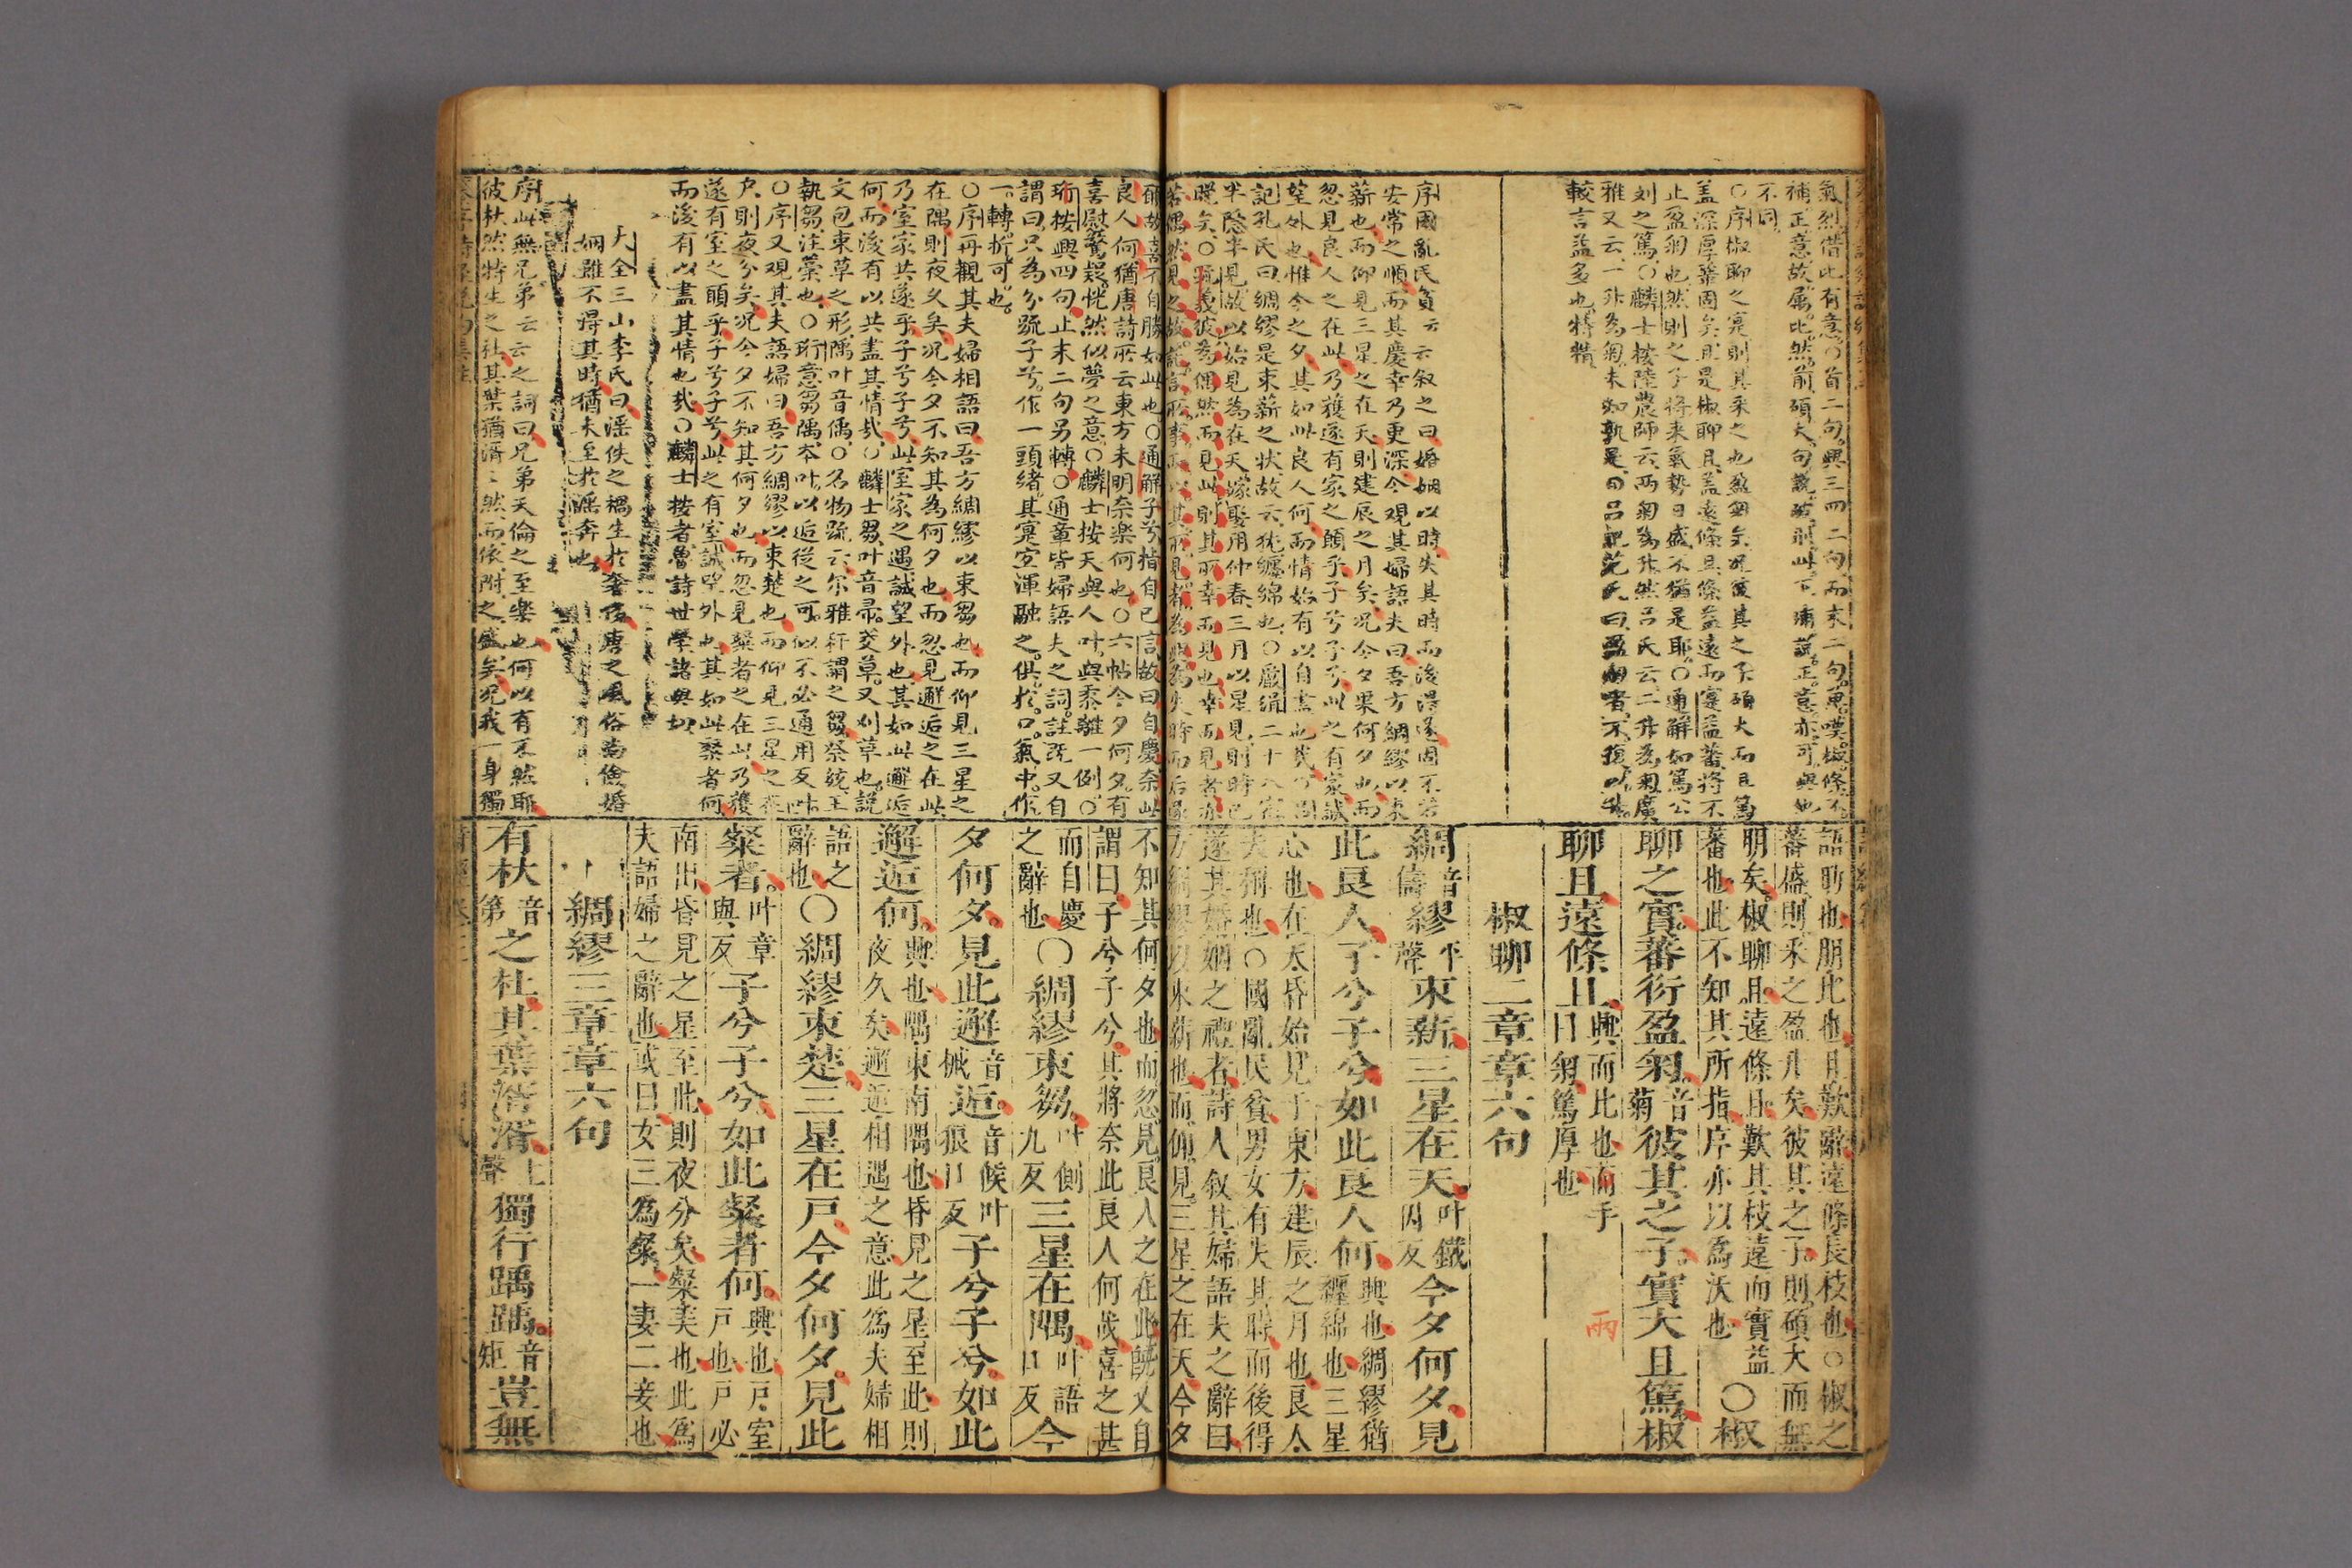 氣烈借此有意○首二句興三四二句而末二句嘆椒條不
補正意故屬比然前碩大句說若則此下補說正意亦可與也
不同
○序椒聊之實則其采之也盈匊矣況彼其之子碩大而且篤
盖深厚蕃固矣且是椒聊且盖遠條且條益遠而實益蕃將不
止盈匊也然則之子將来氣勢日盛不猶是耶○通解如篤公
刘之篤○麟士按陸農師云兩匊為升然吕氏云二升為匊廣
雅又云一升為匊未知孰是
較言益多也特精
序國亂民貧云云叙之曰婚姻以時失其時而後得遂固不若
安常之順而其慶幸乃更深今觀其婦語夫曰吾方綢繆以束
薪也而仰見三星之在天則建辰之月矣况今夕果何夕也而
忽見良人之在此乃獲遂有家之願乎子兮子兮此之有家誠
望外也惟今之夕其如此良人何而情始有以自盡也哉
記孔氏曰綢繆是束薪之状故云犹纏綿也○嚴緝二十八宿
半隐半見故以始見為在天嫁娶用仲春三月以星見則時已
晚矣○疏義彼為偶然而見此則其所幸而見也幸而見者亦
語助也朋比也且歎辭遠條長枝也○椒之
蕃盛則采之盈升矣彼其之子則碩大而無
朋矣椒聊且遠條且歎其枝遠而實益
蕃也此不知其所指序亦以為沃也○椒
聊之實蕃衍盈匊音菊彼其之子實大且篤椒
聊且遠條且興而比也兩手曰匊篤厚也
椒聊二章章六句
綢音儔繆平聲束薪三星在天叶鐵因反今夕何夕見
此良人子兮子兮如此良人何興也綢繆猶纏綿也三星
心也在天昏始見于東方建辰之月也良人
夫稱也○國亂民貧男女有失其時而後得
遂其婚姻之禮者詩人叙其婦語夫之辭曰
方綢繆以束薪也而仰見三星之在天今夕
雨
郁故喜不自勝如此也○通解子兮指自己言故曰自慶奈此
良人何猶唐詩所云東方未明奈樂何也○六帖今夕何夕有
喜慰驚疑恍然似夢之意○麟士按天與人叶與黍離一例○
珩按興四句止末二句另轉○通章皆婦語夫之詞註既又自
謂曰只為分疏子兮作一頭緒其實宜渾融之俱於口氣中作
一轉折可也
○序再觀其夫婦相語曰吾方綢繆以束芻也而仰見三星之
在隅則夜久矣况今夕不知其為何夕也而忽見邂逅之在此
乃室家共遂乎子兮子兮此室家之遇誠望外也其如此邂逅
何而後有以共盡其情哉○麟士芻叶音帚茭草又刈草也說
文包束草之形隅叶音偶○名物疏云尔雅秆謂之芻祭統王
執芻注藁也○珩意芻隅本叶以逅從之可似不必通用反叶
○序又觀其夫語婦曰吾方綢繆以束楚也而仰見三星之在
户則夜分矣况今夕不知其何夕也而忽見粲者之在此乃獲
遂有室之願乎子兮子兮此之有室誠望外也其如此粲者何
而後有以盡其情也哉○麟士按者魯詩世學諸與切
大全三山李氏曰淫佚之禍生於奢侈唐之風俗尚儉婚
姻雖不得其時猶未至於淫奔也
序此無兄弟云云之詞曰兄弟天倫之至樂也何以有不然耶
彼杕然特生之杜其葉猶湑湑然而依附之盛矣况我一身獨
不知其何夕也而忽見良人之在此既又自
謂曰子兮子兮其將奈此良人何哉喜之甚
而自慶之辭也○綢繆束芻叶側九反三星在隅叶語口反今
夕何夕見此邂音械逅音候叶狼口反子兮子兮如此
邂逅何興也隅東南隅也昏見之星至此則夜久矣邂逅相遇之意此為夫婦相
語之辭也○綢繆束楚三星在戶今夕何夕見此
粲者叶章與反子兮子兮如此粲者何興也戶室戶也戶必
南出昏見之星至此則夜分矣粲美也此為
夫語婦之辭也或曰女三為粲一妻二妾也
綢繆三章章六句
有杕音第之杜其葉湑湑上聲獨行踽踽音矩豈無